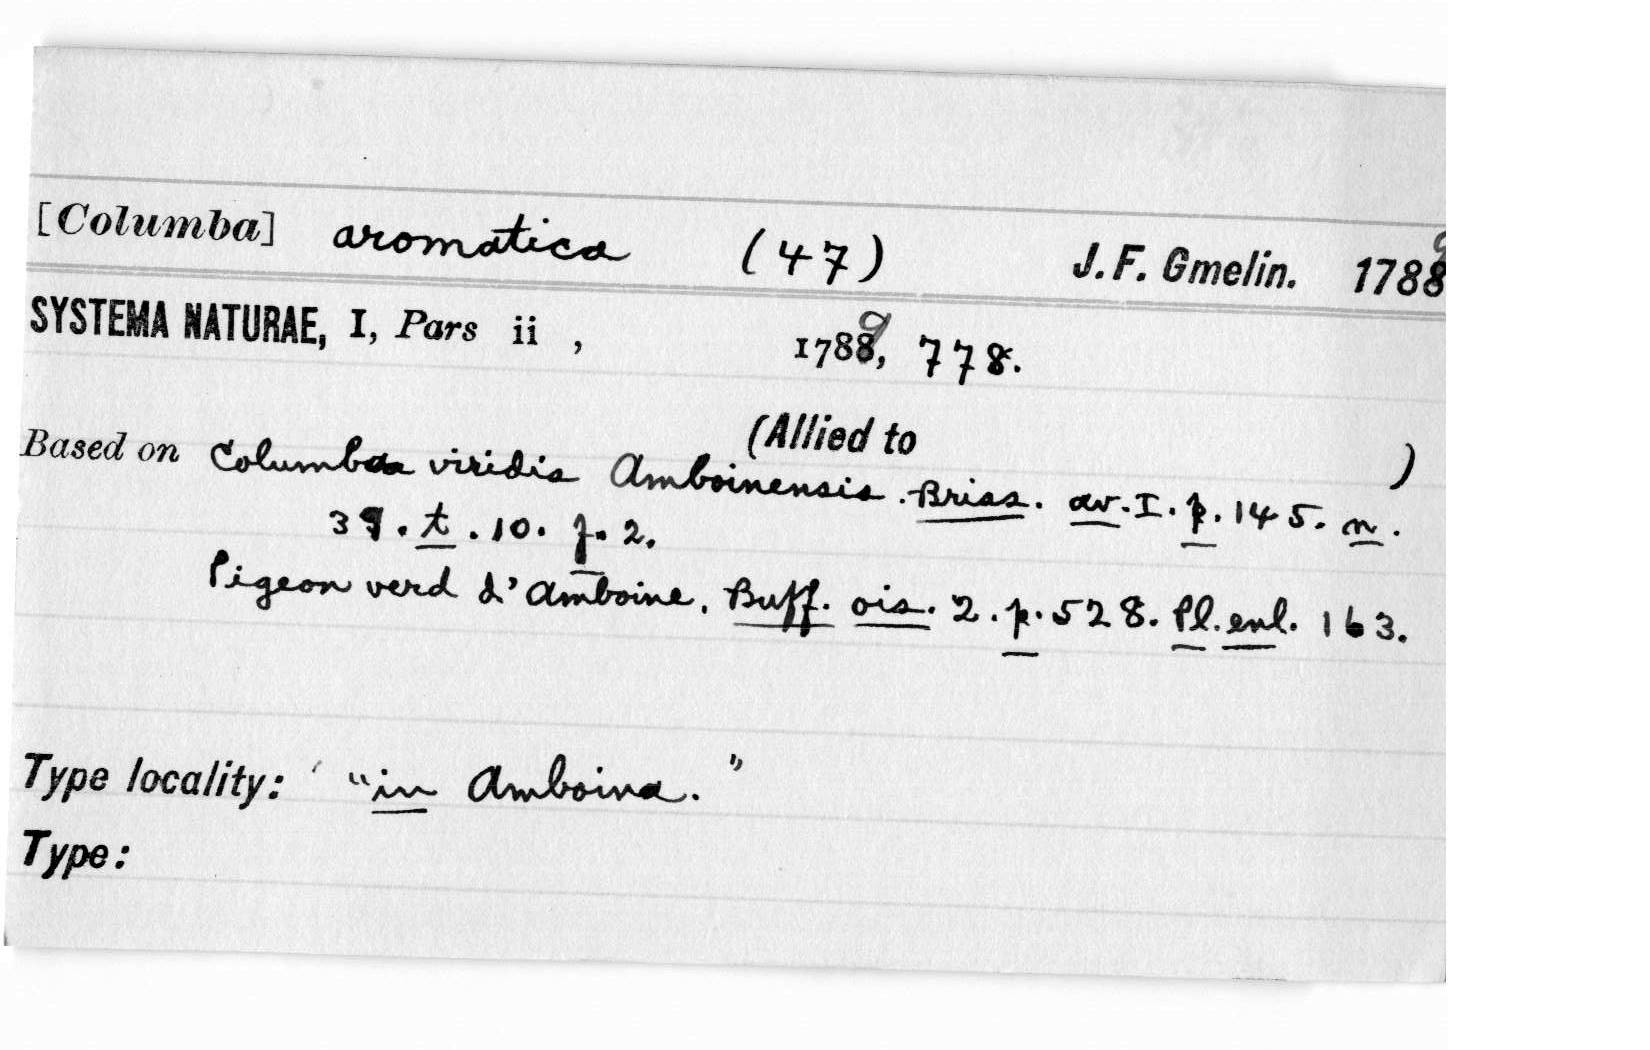 [Columba] aromatica (47) J.F. Gmelin. 1789
SYSTEMA NATURAE, I, Pars ii , 1789, 778.
(Allied to )
Based on Columba viridis Amboinensis. Briss. av. I. p. 145. n.
39. t. 10. f. 2.
Pigeon verd d'Amboine. Buff. ois. 2. p. 528. Pl. enl. 163.
Type locality: "in Amboina."
Type: